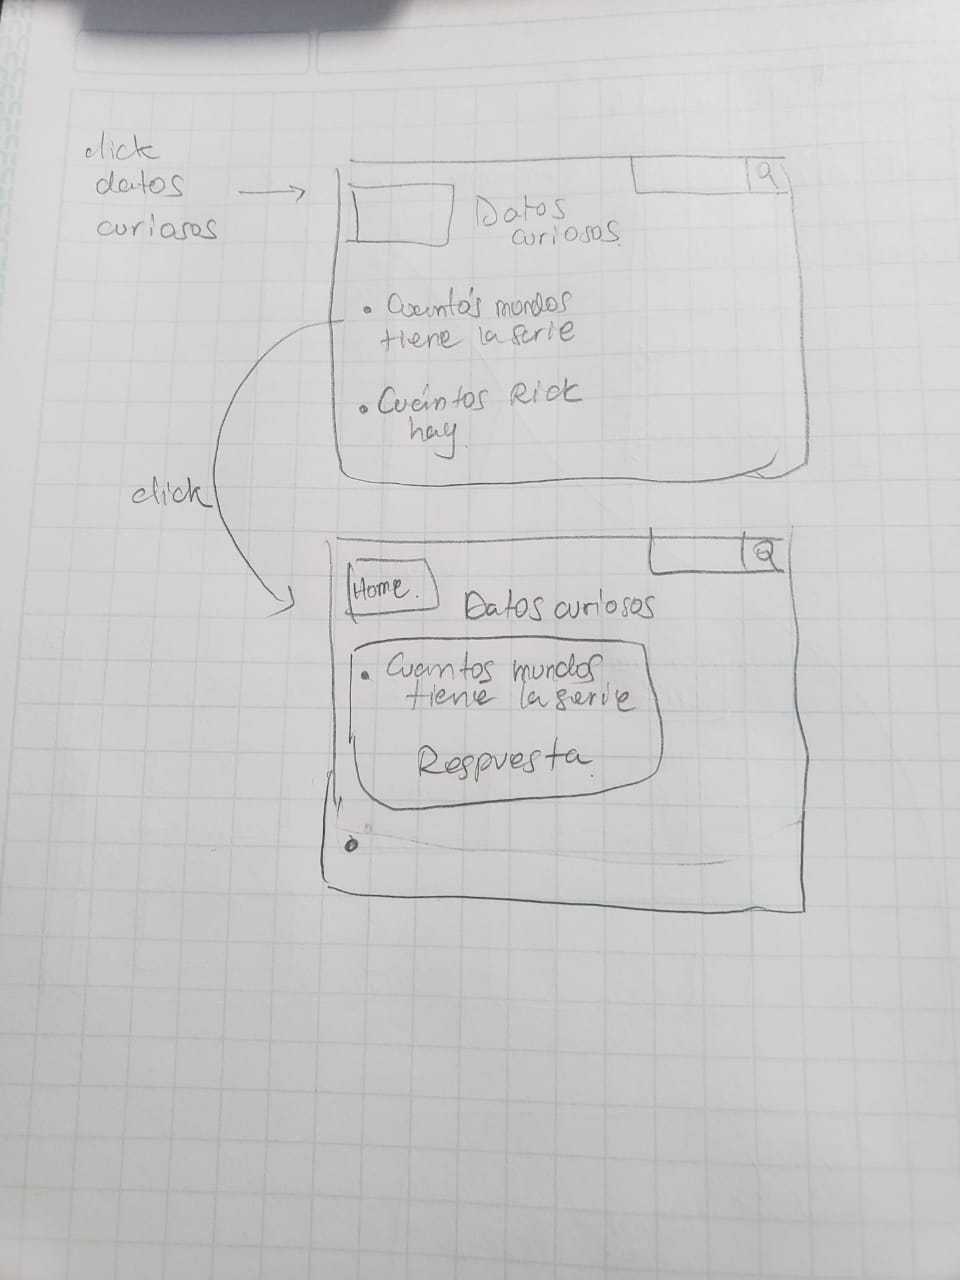 click
datos
curiosos
Datos
curiosos.
• Cuantós mundos
tiene la serie
• Cuántos Rick
hay.
click
Home.
Datos curiosos
• Cuantos mundos
tiene la serie
Respuesta.
•